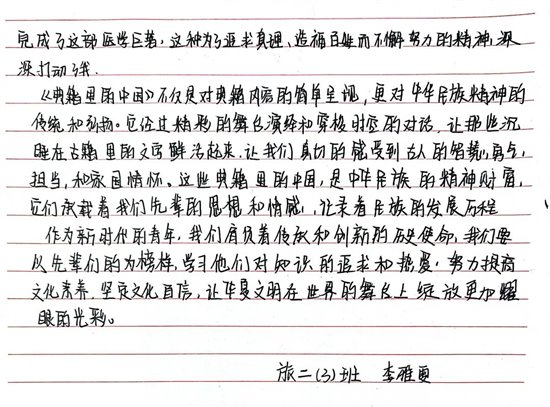 完成了这部医学巨著，这种为了追求真理、造福百姓而不懈努力的精神，深
深打动我.
《典籍里的中国》不仅是对典籍内容的简单呈现，更对中华民族精神的
传统和弘扬。它经过精彩的舞台演绎和穿梭时空的对话，让那些沉
睡在古籍里的文字鲜活起来，让我们真切的感受到古人的智慧，勇气，
担当，和家国情怀。这些典籍里的中国，是中华民族的精神财富，
它们承载着我们先辈的思想和情感，记录着民族的发展历程
作为新时代的青年，我们肩负着传承和创新的历史使命，我们要
以先辈们的为榜样，学习他们对知识的追求和热爱，努力提高
文化素养，坚定文化自信，让华夏文明在世界的舞台上绽放更加耀
眼的光彩。
旅二(3)班 李雅